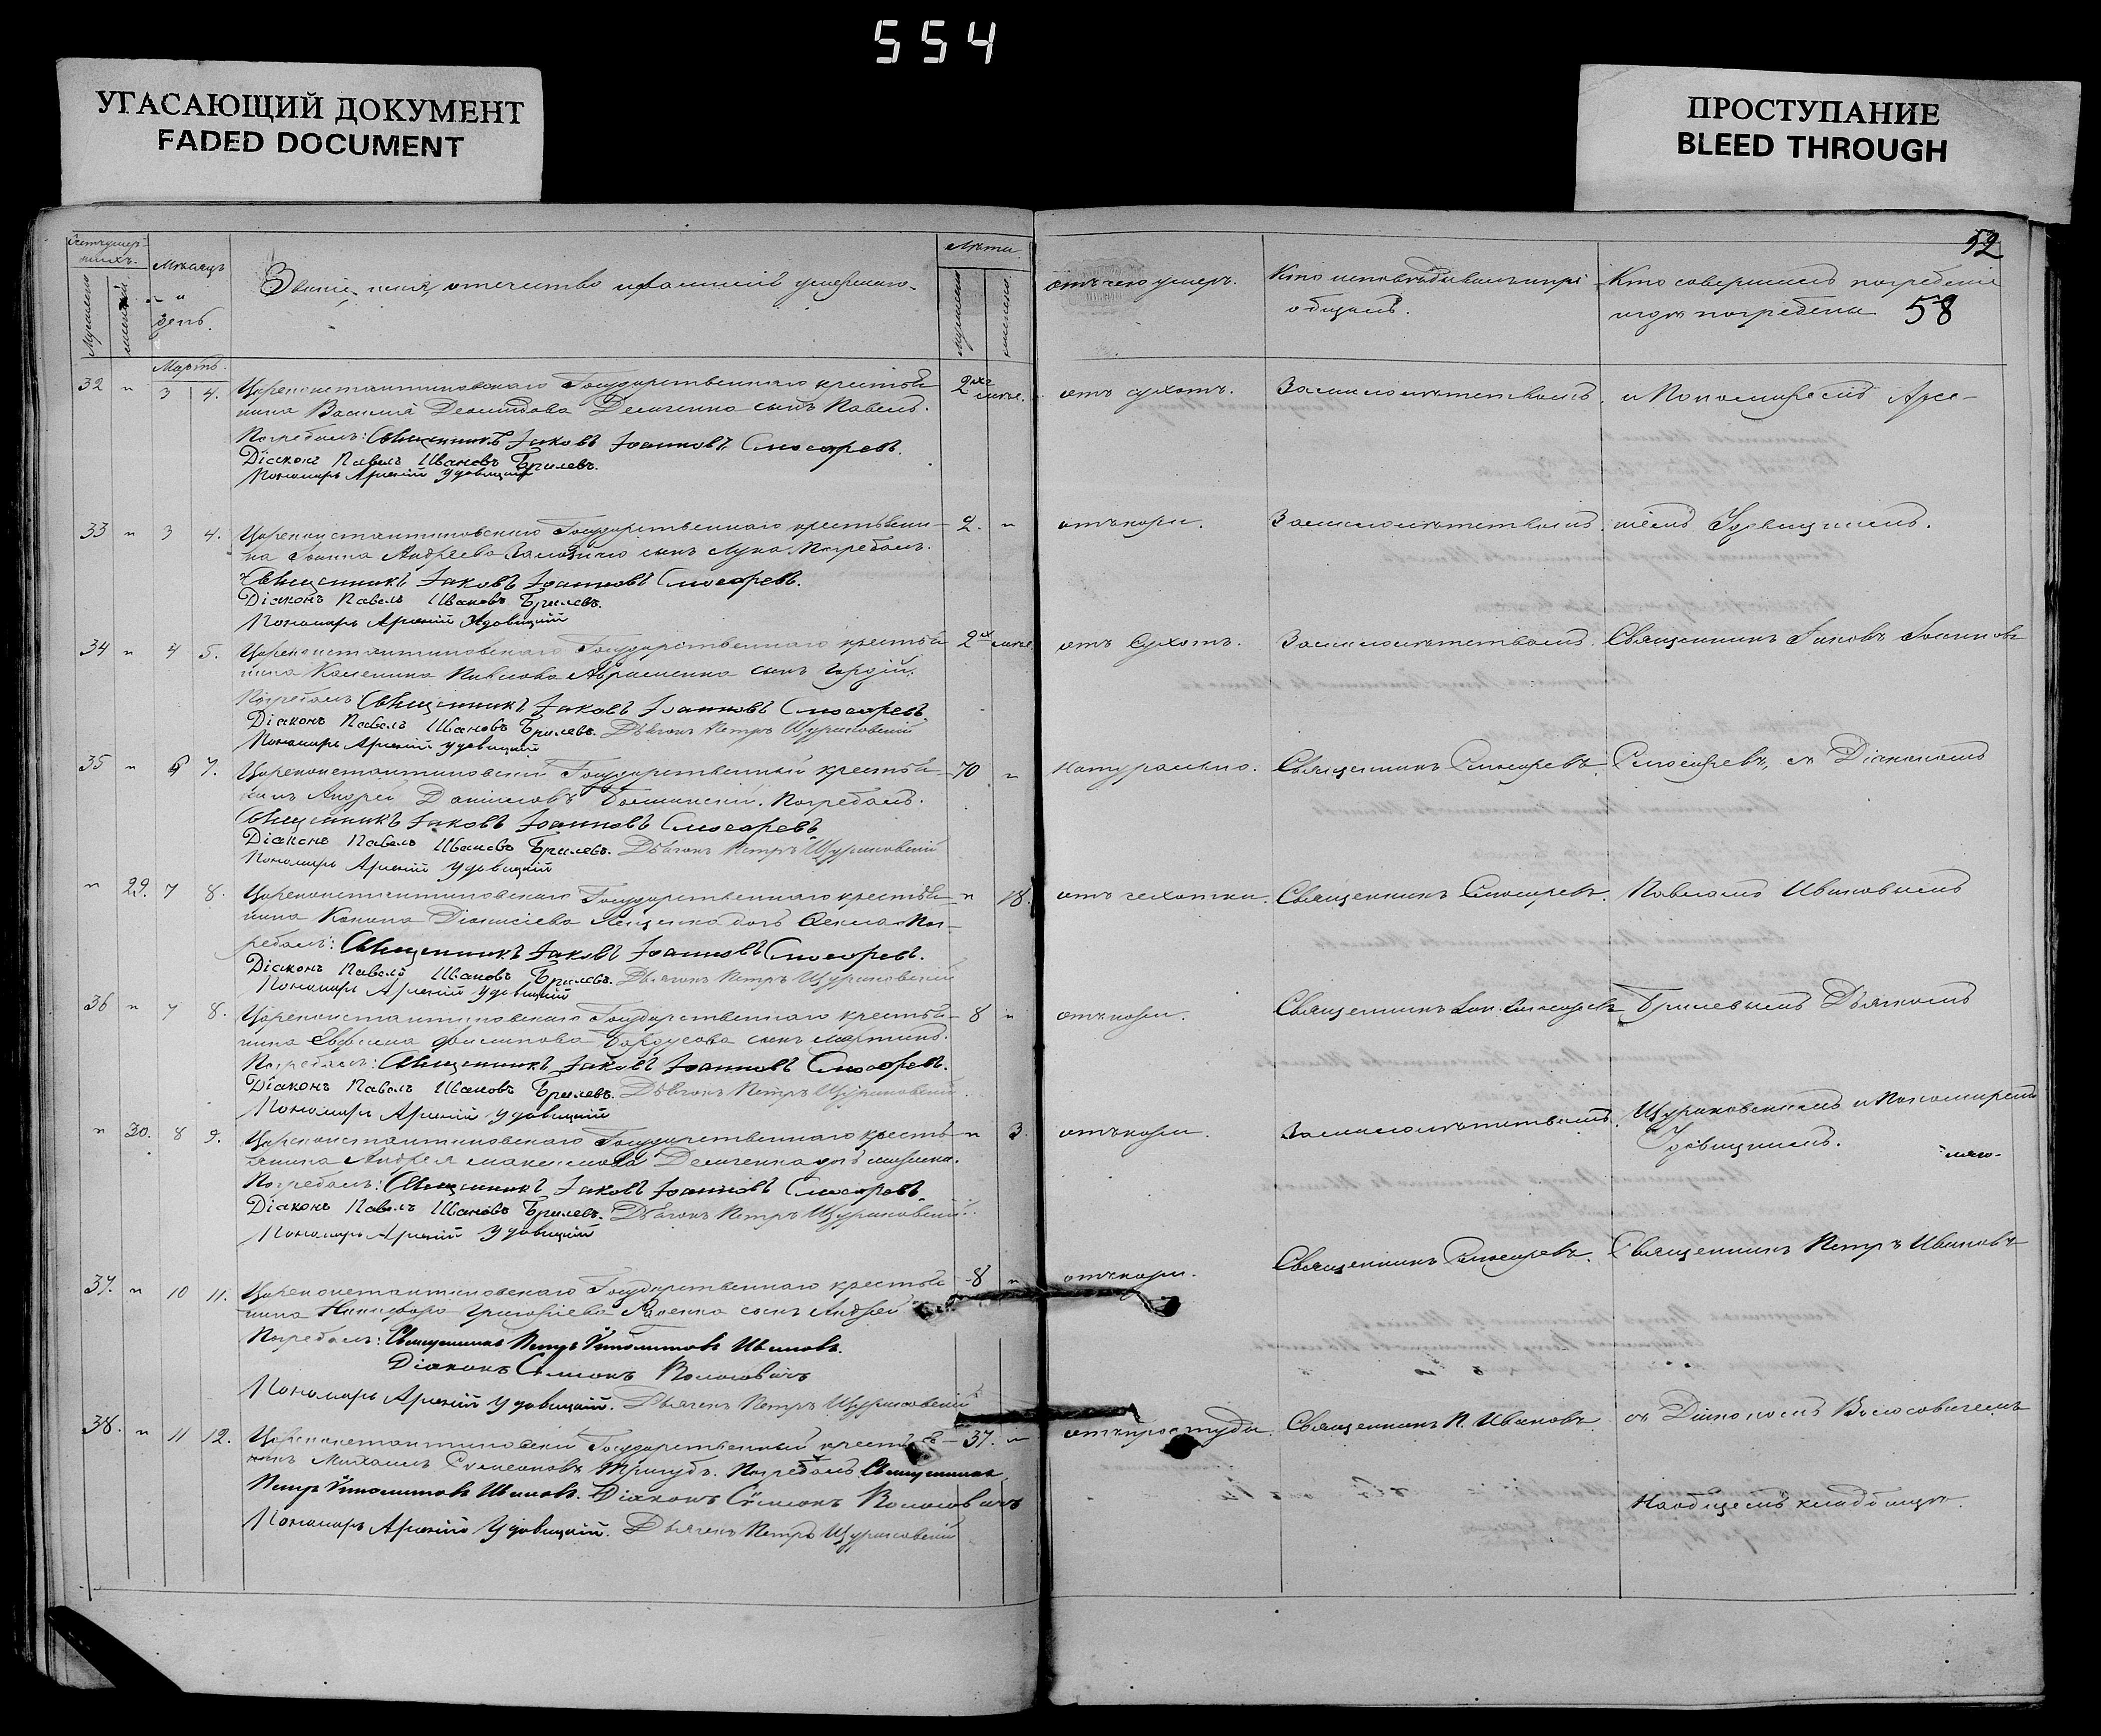 554
УГАСАЮЩИЙ ДОКУМЕНТ
FADED DOCUMENT
ПРОСТУПАНИЕ
BLEED THROUGH
52
58
Мѣсяцъ
и
день.
Званіе, имя, отечество и фамилія умершаго.
Лѣта
Мужеска
женска
Отъ чего умеръ.
Кто исповѣдывалъ и прі
общалъ.
Кто совершалъ погребеніе
и гдѣ погребены
Мартъ.
32 " 3 4. Цареконстантиновскаго Государственнаго крестья
нина Василія Демченка сынъ Павелъ.
Погребалъ: Священникъ Іаковъ Іоанновъ Слюсаревъ.
Діаконъ Павелъ Ивановъ Брилевъ.
Пономарь Арсеній Удовицкій
отъ сухотъ. За малолѣтствомъ. и Пономаремъ Арсе-
33 " 3 4. Цареконстантиновскаго Государственнаго крестьяни-
на Іоанна Андреева сынъ Лука. Погребалъ.
Священникъ Іаковъ Іоанновъ Слюсаревъ.
Діаконъ Павелъ Ивановъ Брилевъ.
Пономарь Арсеній Удовицкій
2. " отъ кори. За малолѣтствомъ. ніемъ Удовицкимъ.
34 " 4 5. Цареконстантиновскаго Государственнаго крестья
нина Павлова Авраменка сынъ Гордій.
Погребалъ Священникъ Іаковъ Іоанновъ Слюсаревъ.
Діаконъ Павелъ Ивановъ Брилевъ. Дьячокъ Петръ Щуриновскій
Пономарь Арсеній Удовицкій
отъ Сухотъ. За малолѣтствомъ. Священникъ Іаковъ Іоанновъ
35 " 6 7. Цареконстантиновскій Государственный крестья-
нинъ Андрей Даніиловъ Погребалъ.
Священникъ Іаковъ Іоанновъ Слюсаревъ
Діаконъ Павелъ Ивановъ Брилевъ. Дьячокъ Петръ Щуриновскій
Пономарь Арсеній Удовицкій
70 " натурально. Священникъ Слюсаревъ. Слюсаревъ, съ Діакономъ
" 29. 7 8. Цареконстантиновскаго Государственнаго крестья-
нина Конона Діонисіева дочь Фекла. Пог-
ребалъ: Священникъ Іаковъ Іоанновъ Слюсаревъ.
Діаконъ Павелъ Ивановъ Брилевъ. Дьячокъ Петръ Щуриновскій
Пономарь Арсеній Удовицкій
" 18. отъ чахотки. Священникъ Слюсаревъ. Павломъ Ивановымъ
36 " 7 8. Цареконстантиновскаго Государственнаго крестья-
нина Евфима Филипова сынъ Мартинъ.
Погребалъ: Священникъ Іаковъ Іоанновъ Слюсаревъ.
Діаконъ Павелъ Ивановъ Брилевъ. Дьячокъ Петръ Щуриновскій
Пономарь Арсеній Удовицкій
8 " отъ кори. Священникъ Іак. Слюсаревъ Брилевымъ Дьячкомъ
" 30. 8 9. Цареконстантиновскаго Государственнаго кресть-
янина Андрея Максимова Демченка дочь
Погребалъ: Священникъ Іаковъ Іоанновъ Слюсаревъ.
Діаконъ Павелъ Ивановъ Брилевъ. Дьячокъ Петръ Щуриновскій.
Пономарь Арсеній Удовицкій
" 3. отъ кори. За малолѣтствомъ. Щуриновскимъ и Пономаремъ
Удовицкимъ.
37. " 10 11. Цареконстантиновскаго Государственнаго крестья
нина Никифора Григоріева сынъ Андрей
Погребалъ: Священникъ Петръ Ивановъ.
Діаконъ Симеонъ Волосовичъ
Пономарь Арсеній Удовицкій. Дьячокъ Петръ Щуриновскій
8 " отъ кори. Священникъ Слюсаревъ. Священникъ Петръ Ивановъ
38. " 11 12. Цареконстантиновскій Государственный крестья-
нинъ Михаилъ Симеоновъ Тригубъ. Погребалъ Священникъ
Петръ Ивановъ. Діаконъ Симеонъ Волосовичъ
Пономарь Арсеній Удовицкій. Дьячокъ Петръ Щуриновскій
37. " отъ простуды. Священникъ П. Ивановъ. съ Діакономъ Волосовичемъ
На общемъ кладбищѣ.